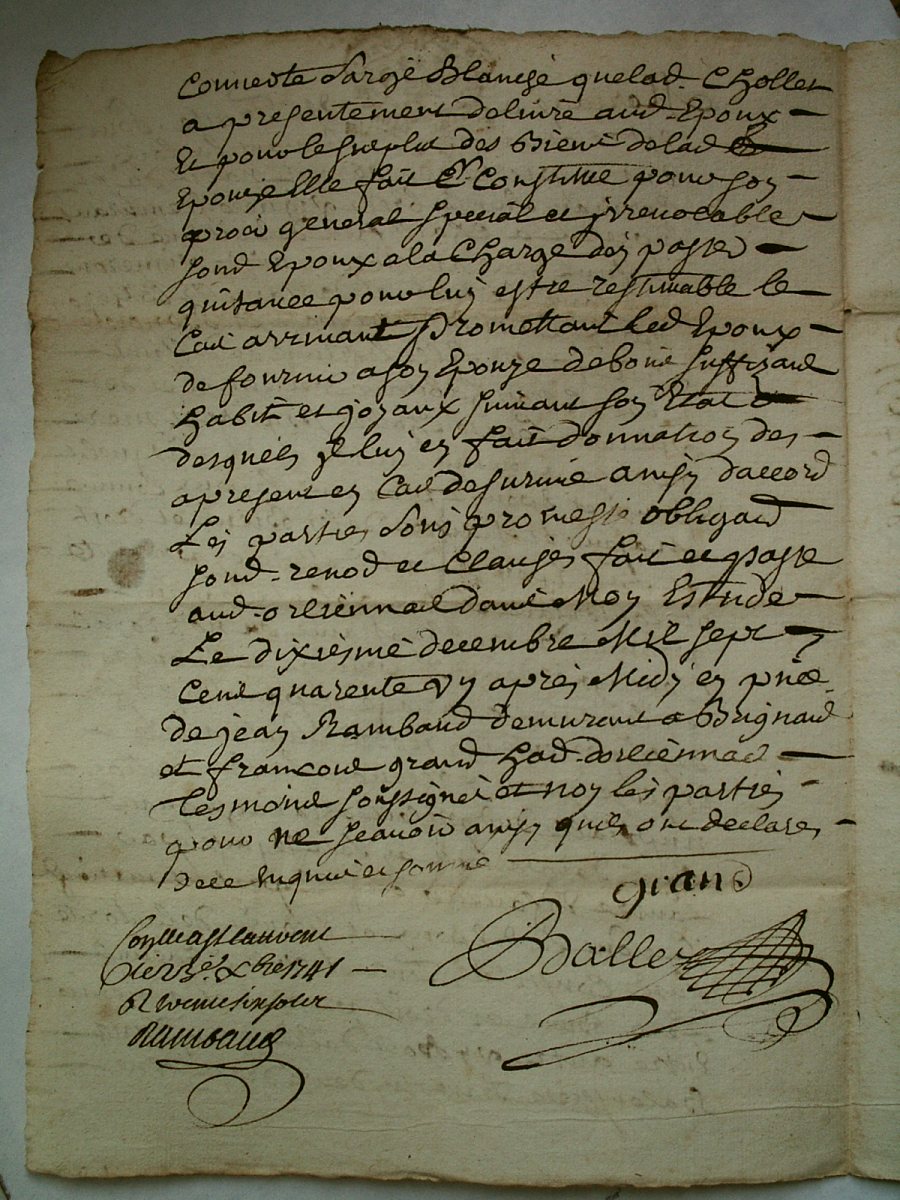 Couverte Sarge Blanche que lad. Chollet
a presentement delivré aud. Epoux
Et pour le surplus des Biens de lad.
Epouze elle fait & Constitue pour son
procr general special et irrevocable
sond Epoux a la Charge den passer
quitance pour luy estre restituable le
Cas arrivant Promettant led Epoux
de fournir a son Epouze de bons suffizant
habits et joyaux suivant son Etat
desquels Il luy en fait donnation des
a present en Cas de survie ainsy daccord
Les parties sous promesse obligaon
sond. renoon et Clauses fait et passé
aud. orliennas dans Mon Estude
Le dixiesme decembre Mil sept
Cent quarente Un apres Midy en pnce
de jean Rambaud demurant a Brignais
et francois grand had. dorliennas
tesmoins soussignés et non les parties
pour ne scavoir ainsy quils ont declaré
de ce Enquis et somme
grand
Con.lé a St Laurent
le 10bre 1741
R
Rambaud